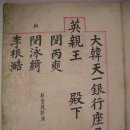 大韓天一銀行座
英親王 殿下
閔丙奭
閔泳綺
李根澔